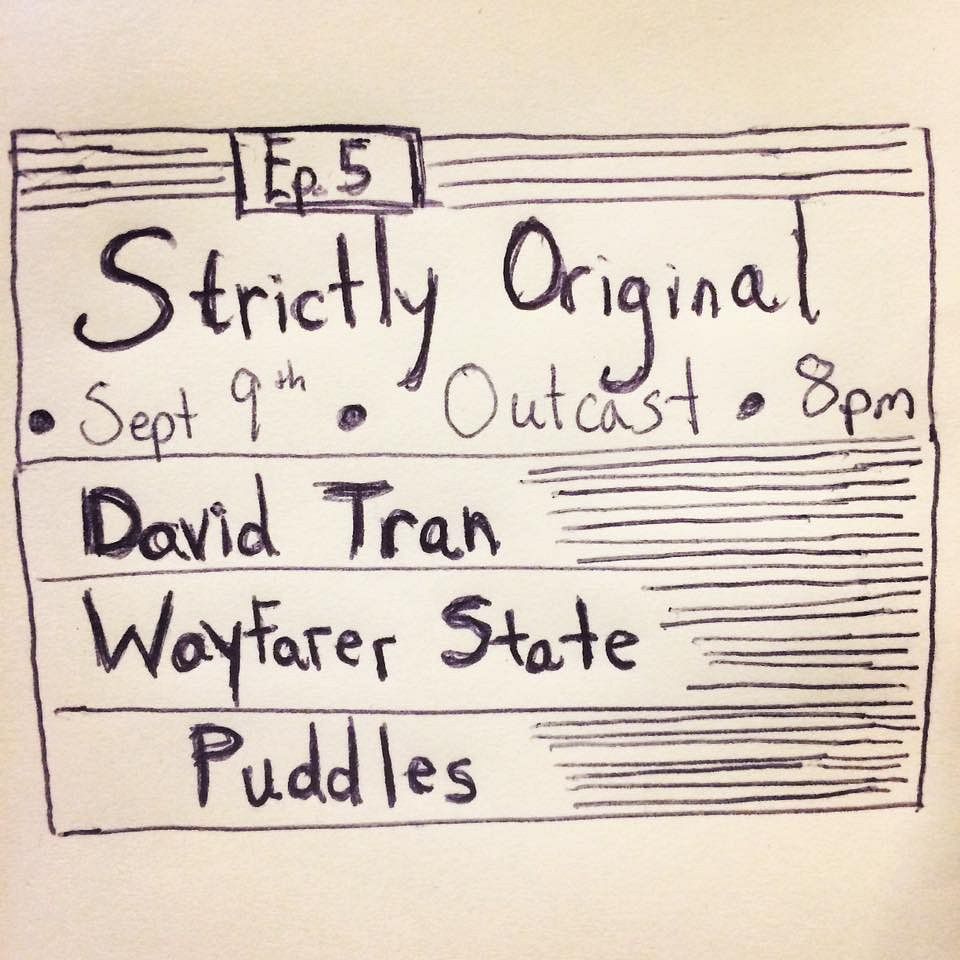 Ep. 5
Strictly Original
• Sept 9th • Outcast • 8pm
David Tran
Wayfarer State
Puddles